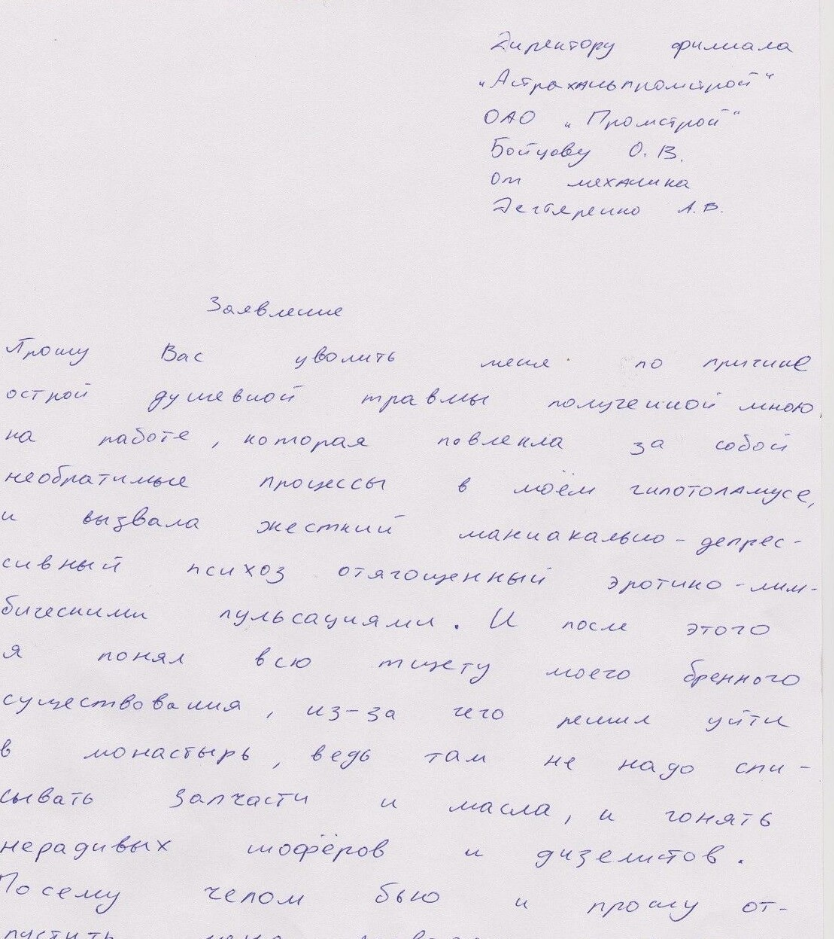 Директору филиала
„Астраханьпромстрой"
ОАО „Промстрой"
Бойцову О.В.
От механика
Дегтяренко А.В.
Заявление
Прошу Вас уволить меня по причине
острой душевной травмы полученной мною,
на работе, которая повлекла за собой
необратимые процессы в моём гипотоламусе,
и вызвала жесткий маниакально-депрес-
сивный психоз отягощенный эротико-лим-
бическими пульсациями. И после этого
я понял всю тщету моего бренного
существования, из-за чего решил уйти
в монастырь, ведь там не надо спи-
сывать запчасти и масла, и гонять
нерадивых шофёров и дизелистов.
Посему челом бью и прошу от-
пустить меня